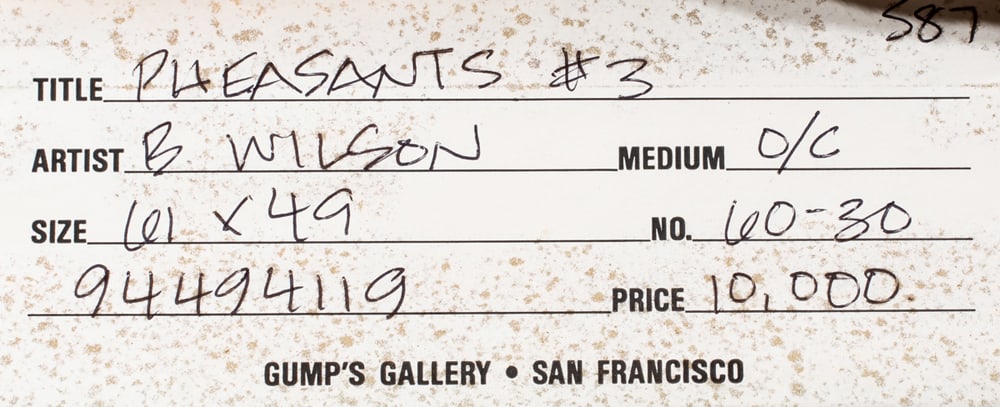 587
TITLE PHEASANTS #3
ARTIST B WILSON MEDIUM O/C
SIZE 61 x 49 NO. 60-30
94494119 PRICE 10,000.
GUMP'S GALLERY • SAN FRANCISCO